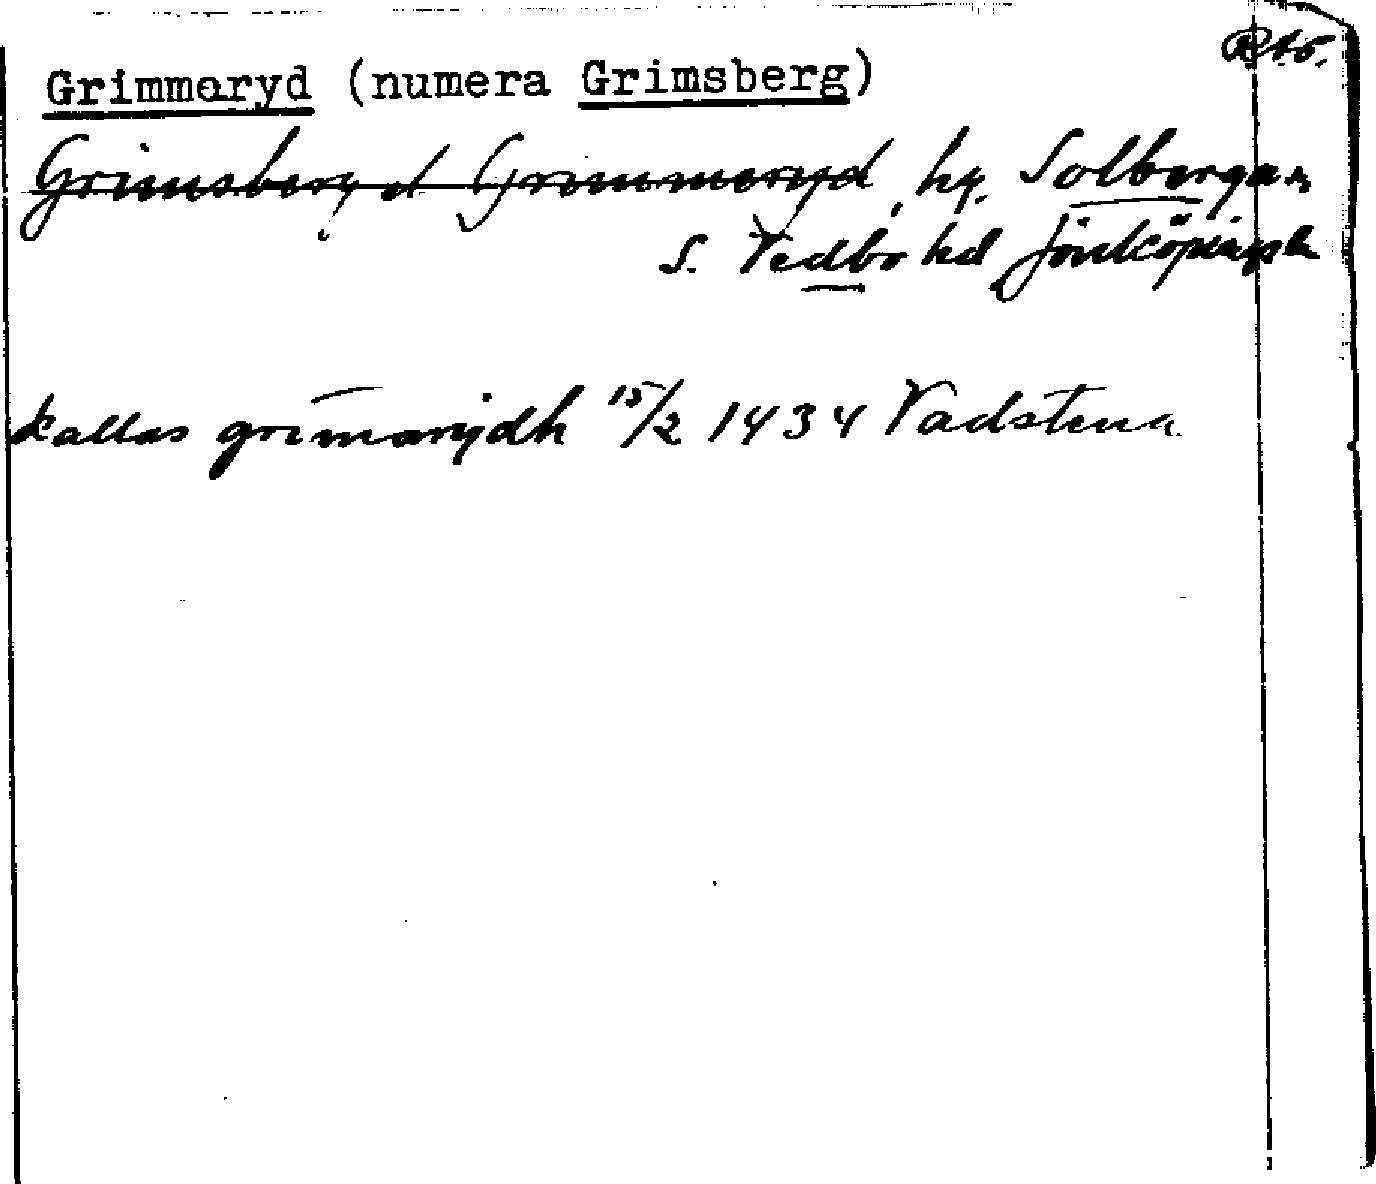 Grimmaryd (numera Grimsberg)
Grimsberg el Grimmeryd, hg. Solberga sn
S. Vedbo hd Jönköpings l
kallas grīmarydh 15/2 1434 Vadstena